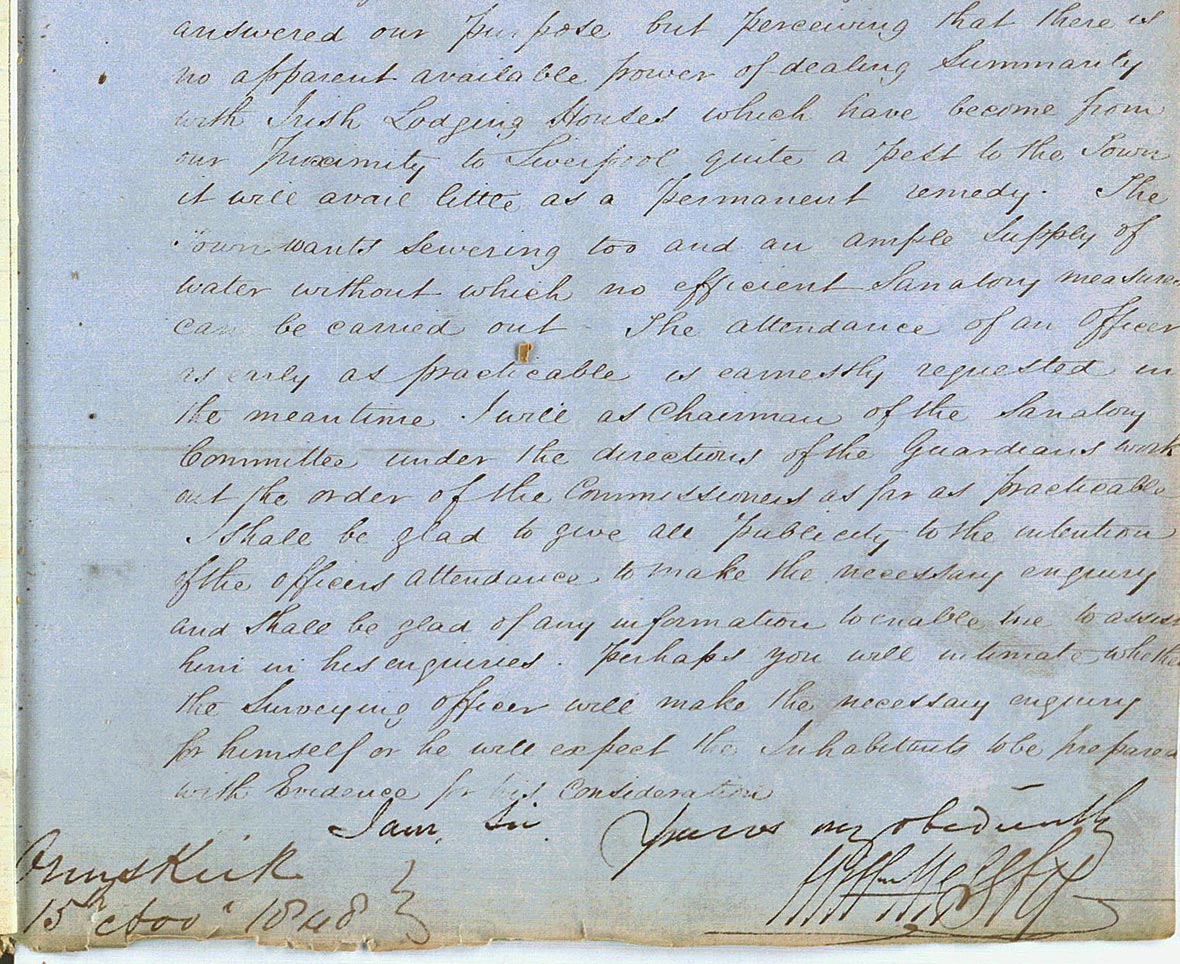 answered our purpose but perceiving that there is
no apparent available power of dealing Summarily
with Irish Lodging Houses which have become from
our Proximity to Liverpool quite a pest to the Town
it will avail little as a permanent remedy. The
Town wants sewering too and an ample supply of
water without which no efficient Sanatory measures
can be carried out - The attendance of an Officer
as early as practicable is earnestly requested in
the meantime I will as Chairman of the Sanatory
Committee under the directions of the Guardians work
out the order of the Commissioners as far as practicable
I shall be glad to give all Publicity to the intention
of the officers attendance to make the necessary enquiry
and shall be glad of any information to enable me to assist
him in his enquiries. Perhaps you will intimate whether
the Surveying officer will make the necessary enquiry
for himself or he will expect the Inhabitants to be prepared
with Evidence for his consideration
I am, Sir
Yours very obediently
Ormskirk
15th Nov. 1848